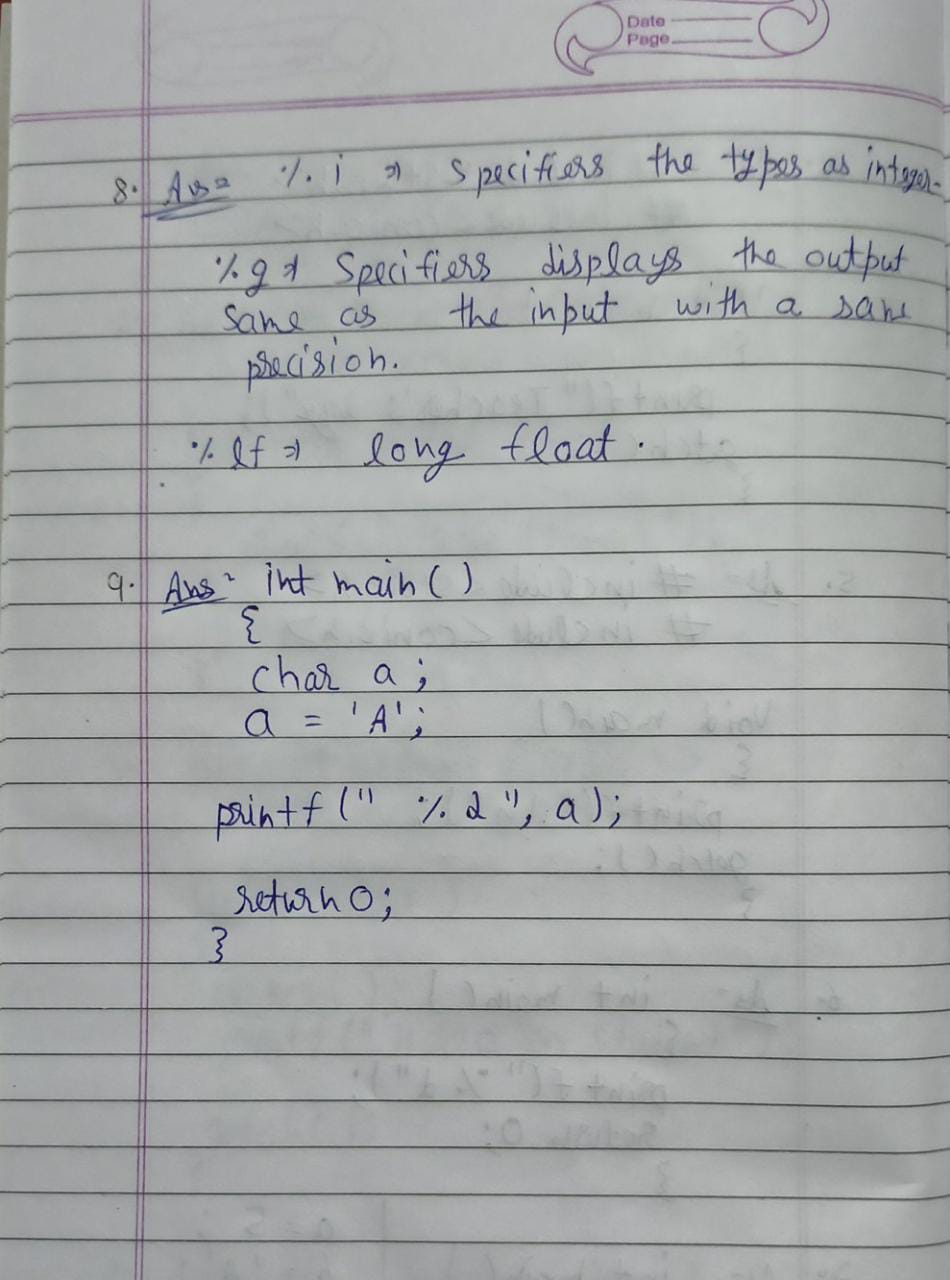 Date
Page
8. Ans= %i ⇒ Specifiers the types as integer.
%g ⇒ Specifiers displays the output
same as the input with a same
precision.
%lf ⇒ long float.
9. Ans= int main()
{
char a;
a = 'A';
printf(" %d", a);
return 0;
}